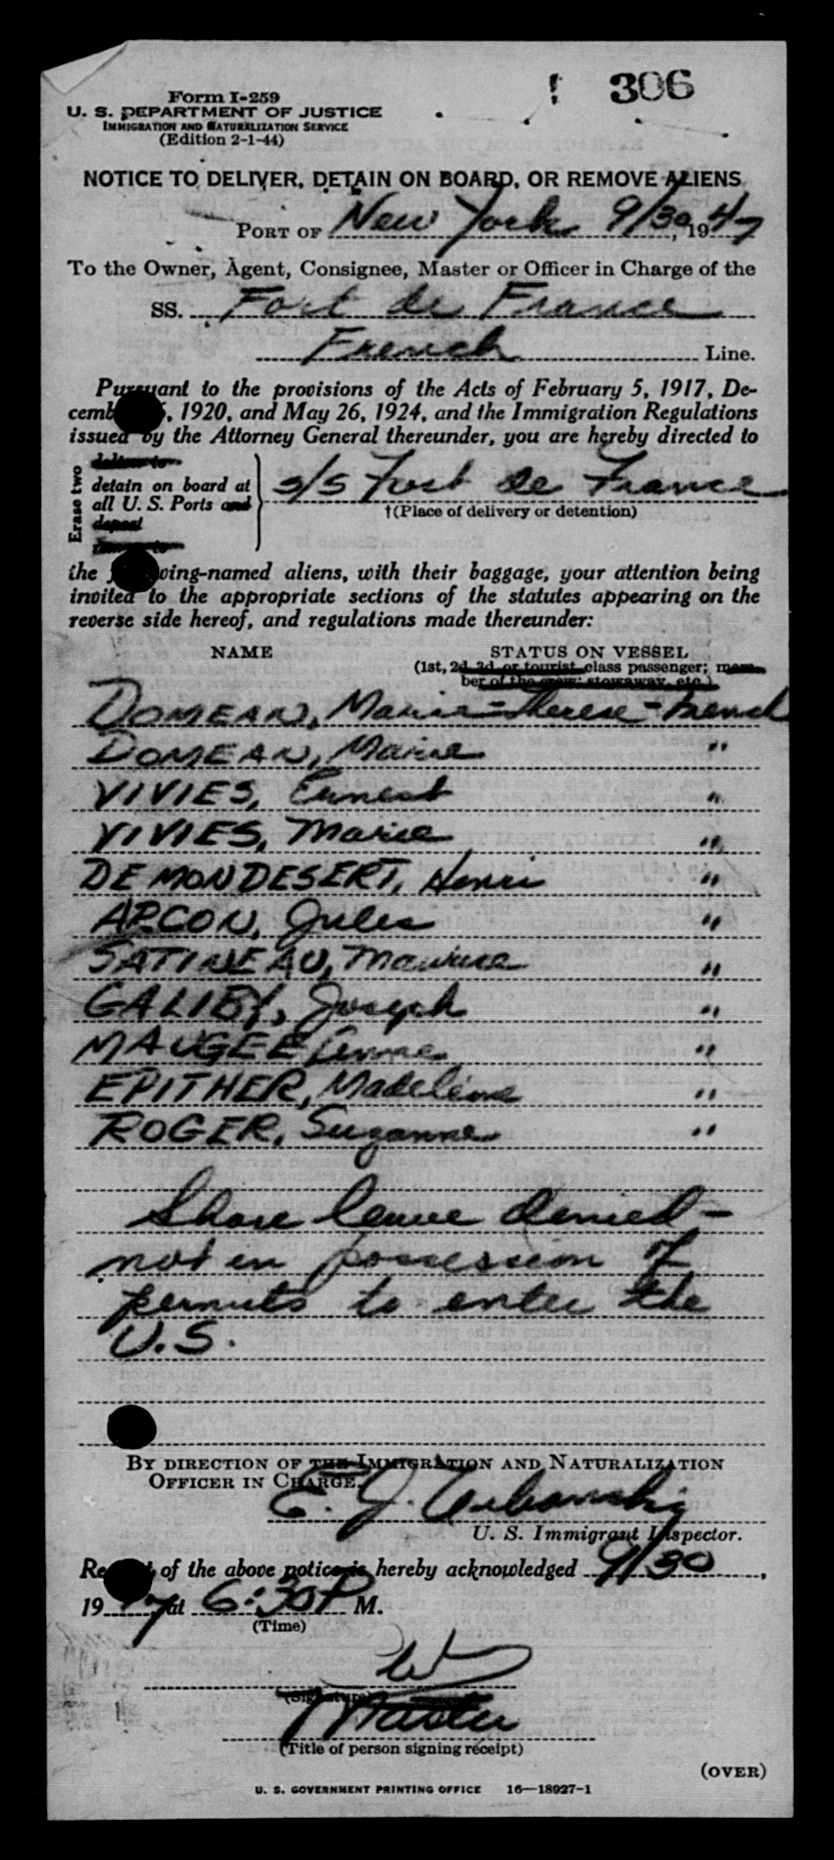 306
Form I-259
U. S. DEPARTMENT OF JUSTICE
IMMIGRATION AND NATURALIZATION SERVICE
(Edition 2-1-44)
NOTICE TO DELIVER, DETAIN ON BOARD, OR REMOVE ALIENS
PORT OF New York 9/30, 1947
To the Owner, Agent, Consignee, Master or Officer in Charge of the
SS. Fort de France
French Line.
Pursuant to the provisions of the Acts of February 5, 1917, De-
cember 26, 1920, and May 26, 1924, and the Immigration Regulations
issued by the Attorney General thereunder, you are hereby directed to
Erase two
deliver to
detain on board at
all U. S. Ports and
deport
s/s Fort de France
†(Place of delivery or detention)
the following-named aliens, with their baggage, your attention being
invited to the appropriate sections of the statutes appearing on the
reverse side hereof, and regulations made thereunder:
NAME STATUS ON VESSEL
(1st, 2d, 3d, or tourist class passenger; mem-
ber of the crew; stowaway, etc.)
DOMEAN, Marie-Therese - French
DOMEAN, Marie "
VIVIES, Ernest "
VIVIES, Marie "
DEMONDESERT, Henri "
ARCON, Jules "
SATINEAU, Maurice "
GALIBY, Joseph "
MAUGEE, Anne "
EPITHER, Madeleine "
ROGER, Suzanne "
Shore leave denied -
not in possession of
permits to enter the
U.S.
BY DIRECTION OF THE IMMIGRATION AND NATURALIZATION
OFFICER IN CHARGE.
E. J. Urbanski
U. S. Immigrant Inspector.
Receipt of the above notice is hereby acknowledged 9/30,
1947, at 6:30 P M.
(Time)
(Signature)
Master
(Title of person signing receipt)
(OVER)
U. S. GOVERNMENT PRINTING OFFICE 16—18927-1